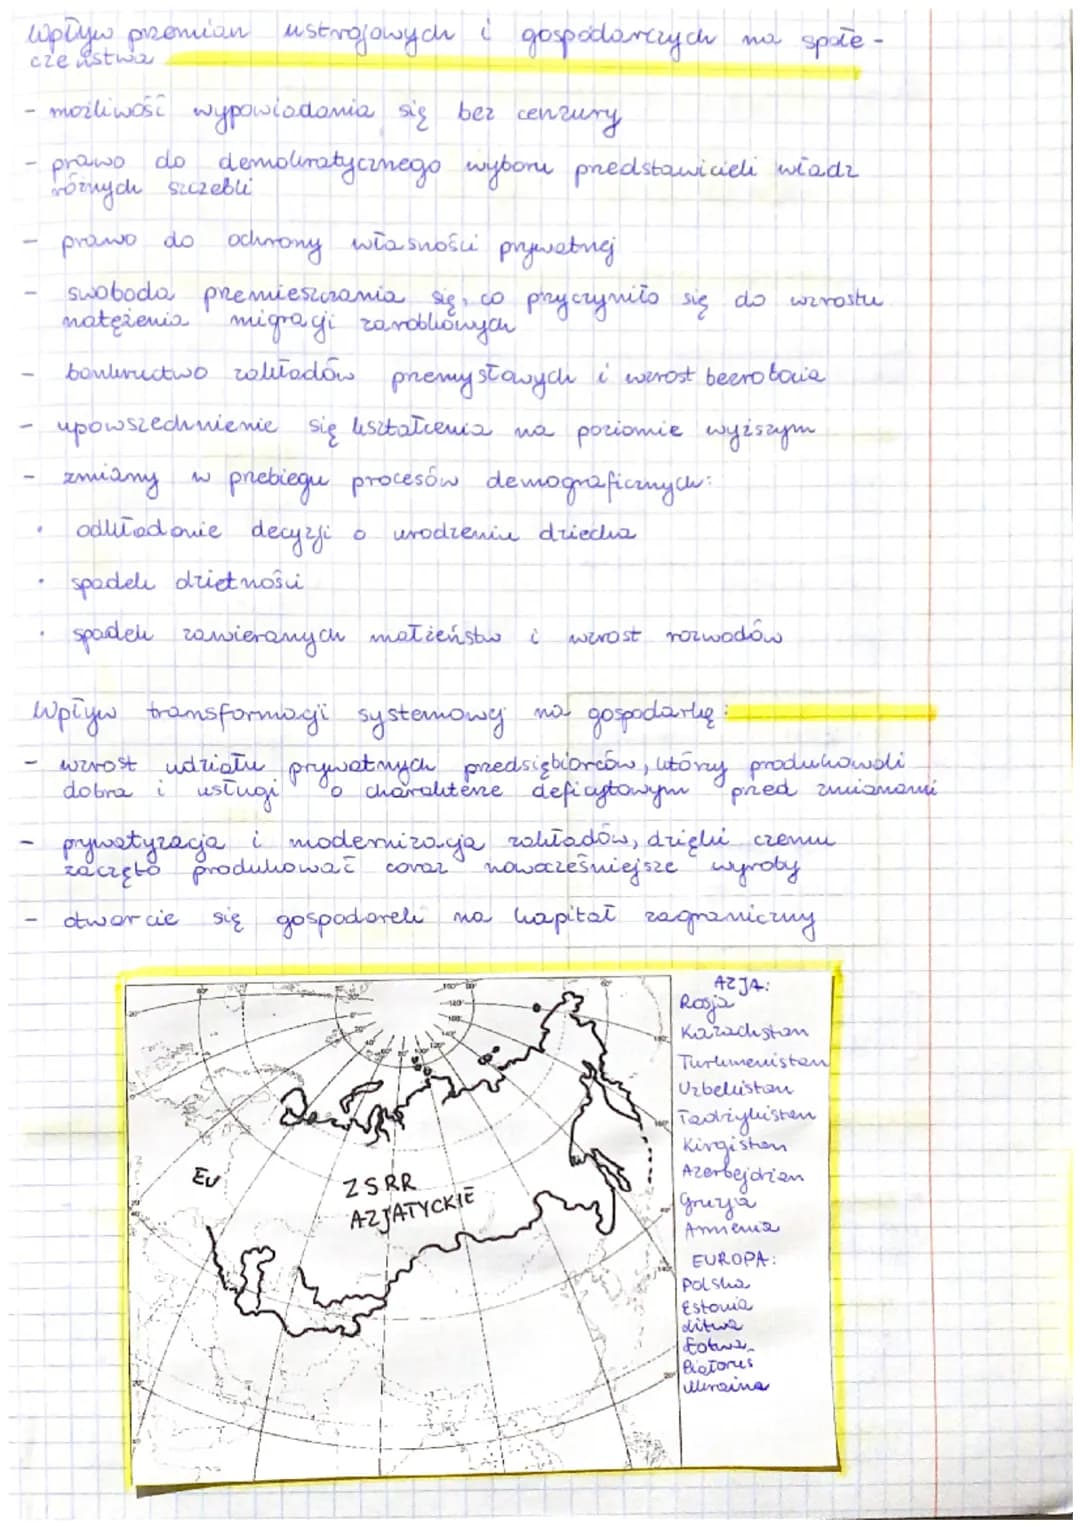 Wpływ przemian ustrojowych i gospodarczych na społe-
czeństwa
- możliwość wypowiadania się bez cenzury
- prawo do demokratycznego wyboru przedstawicieli władz
różnych szczebli
- prawo do ochrony własności prywatnej
- swoboda przemieszczania się, co przyczyniło się do wzrostu
natężenia migracji zarobkowych
- bankructwo zakładów przemysłowych i wzrost bezrobocia
- upowszechnienie się kształcenia na poziomie wyższym
- zmiany w przebiegu procesów demograficznych:
• odkładanie decyzji o urodzeniu dziecka
• spadek dzietności
• spadek zawieranych małżeństw i wzrost rozwodów
Wpływ transformacji systemowej na gospodarkę:
- wzrost udziału prywatnych przedsiębiorców, którzy produkowali
dobra i usługi o charakterze deficytowym przed zmianami
- prywatyzacja i modernizacja zakładów, dzięki czemu
zaczęto produkować coraz nowocześniejsze wyroby
- otwarcie się gospodarek na kapitał zagraniczny
EU
ZSRR
AZJATYCKIE
AZJA:
Rosja
Kazachstan
Turkmenistan
Uzbekistan
Tadżykistan
Kirgistan
Azerbejdżan
Gruzja
Armenia
EUROPA:
Polska
Estonia
Litwa
Łotwa
Białoruś
Ukraina